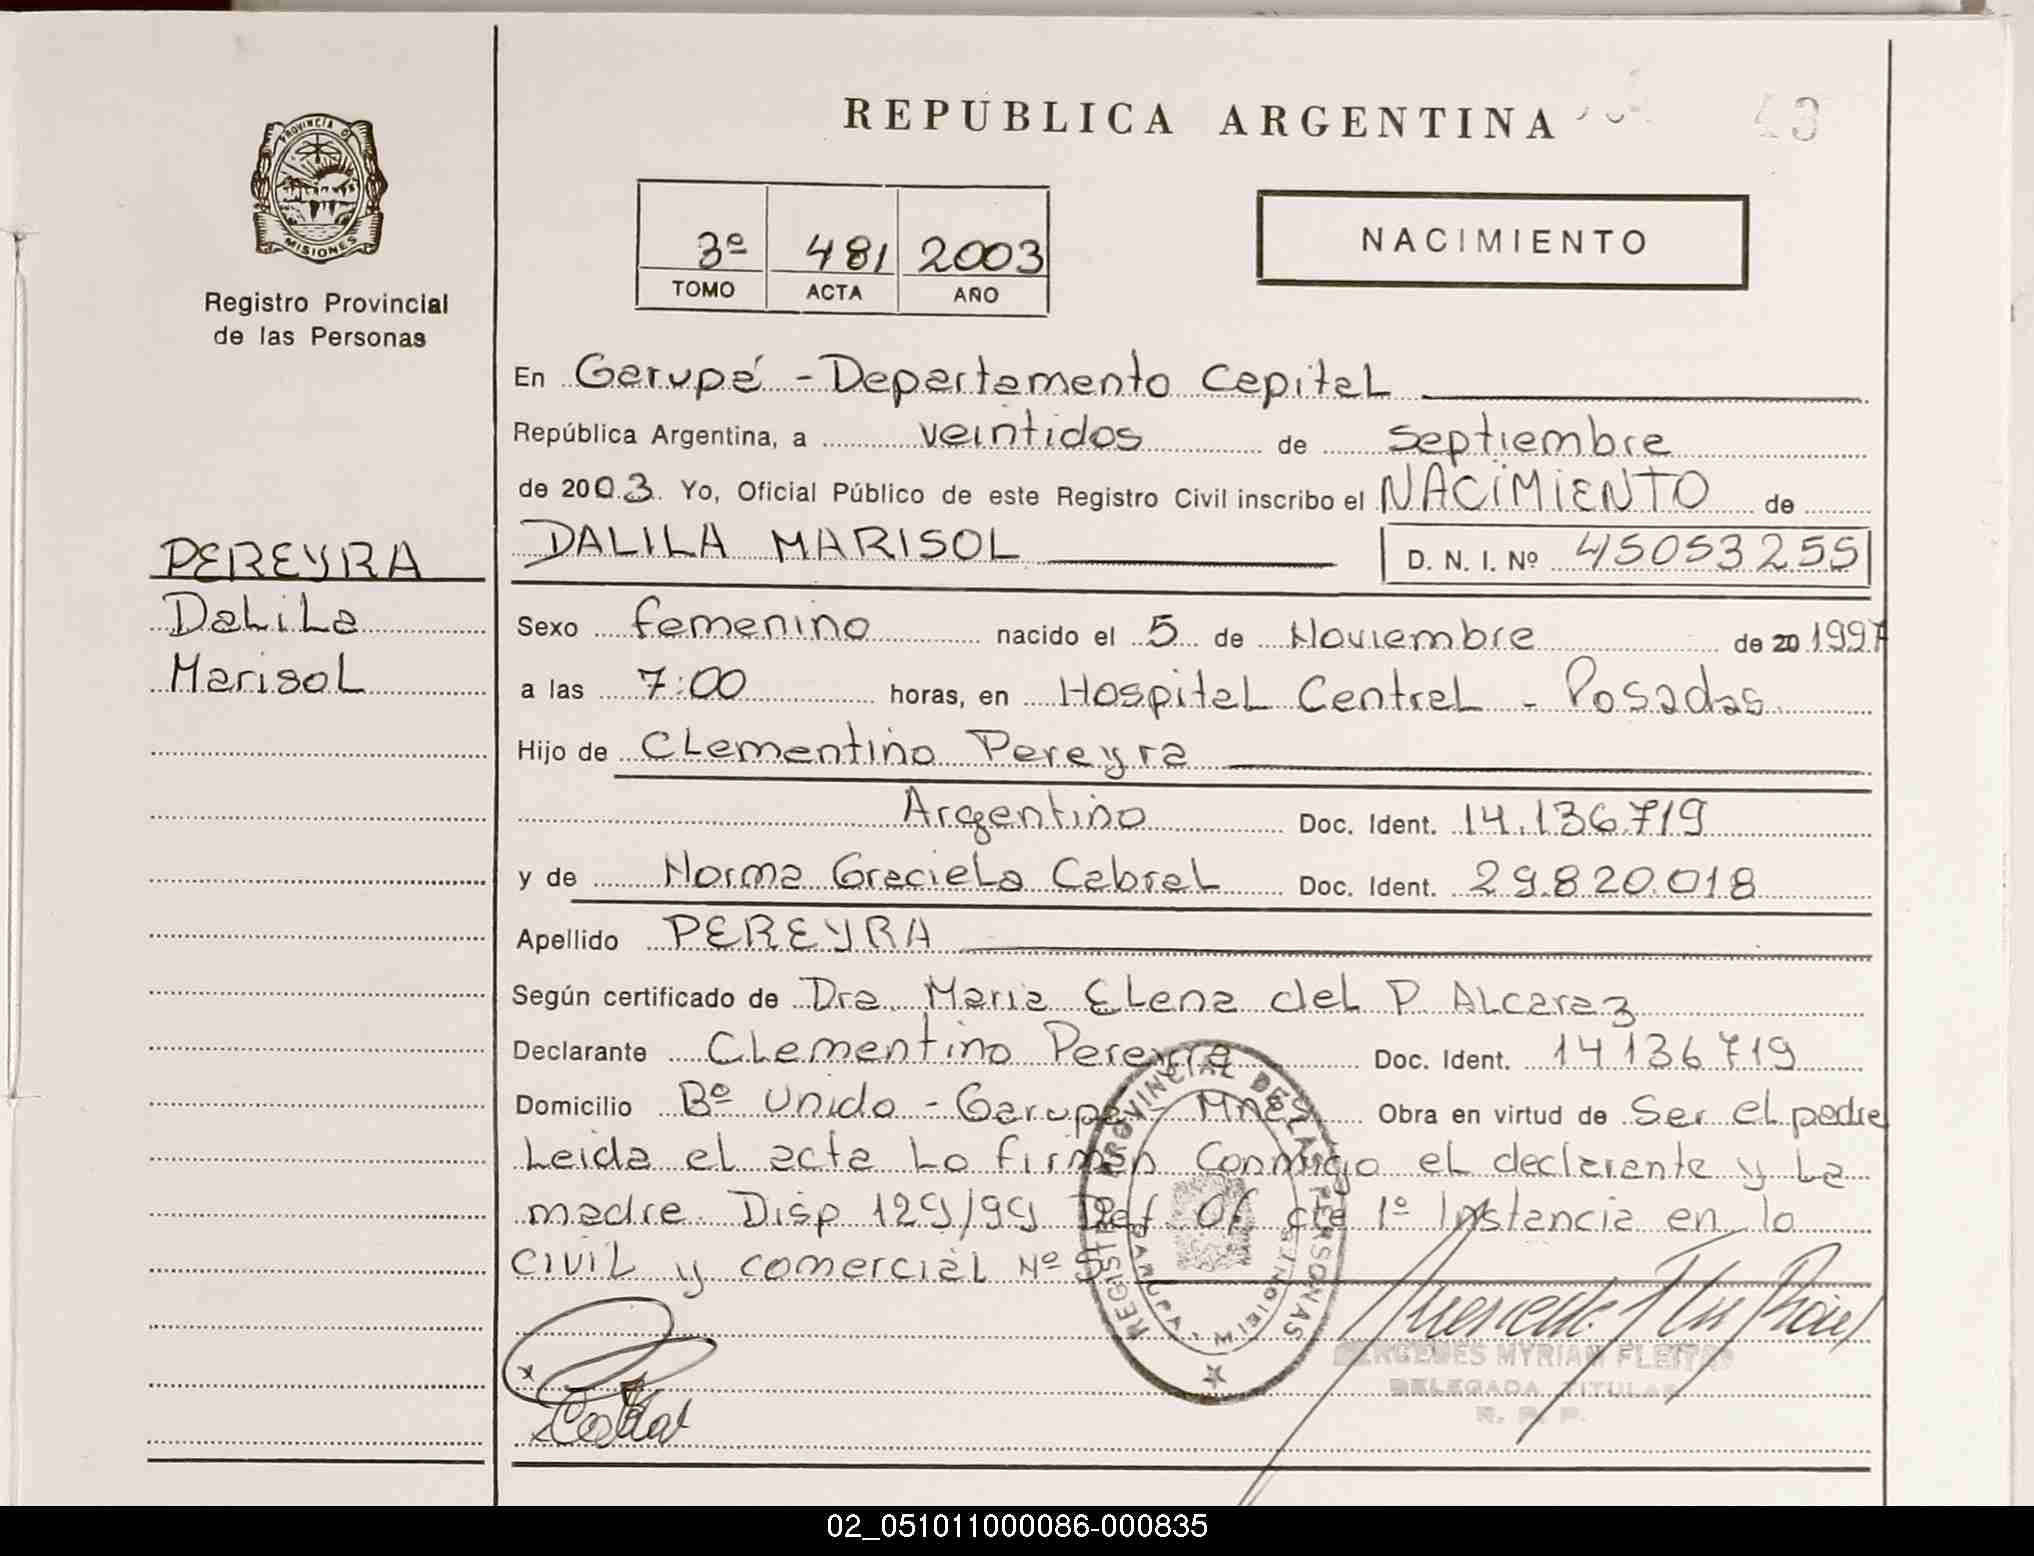 REPUBLICA ARGENTINA
43
PROVINCIA D
MISIONES
Registro Provincial
de las Personas
3º 481 2003
TOMO ACTA AÑO
NACIMIENTO
En Garupá - Departamento Capital
República Argentina, a veintidos de septiembre
de 2003. Yo, Oficial Público de este Registro Civil inscribo el NACIMIENTO de
DALILA MARISOL D. N. I. Nº 45053255
PEREYRA
Dalila
Marisol
Sexo femenino nacido el 5 de Noviembre de 20 1997
a las 7:00 horas, en Hospital Central - Posadas
Hijo de Clementino Pereyra
Argentino Doc. Ident. 14.136.719
y de Norma Graciela Cabral Doc. Ident. 29.820.018
Apellido PEREYRA
Según certificado de Dra. Maria Elena del P. Alcaraz
Declarante Clementino Pereyra Doc. Ident. 14136719
Domicilio Bº Unido - Garupá Mnes Obra en virtud de Ser el padre
Leida el acta Lo firman Conmigo el declarante y La
madre. Disp 129/99 Def Of cte 1º Instancia en lo
civil y comercial Nº 5
REGISTRO PROVINCIAL DE LAS PERSONAS
GARUPA - MISIONES
MERCEDES MYRIAM FLEITAS
DELEGADA TITULAR
R. P. P.
02_051011000086-000835